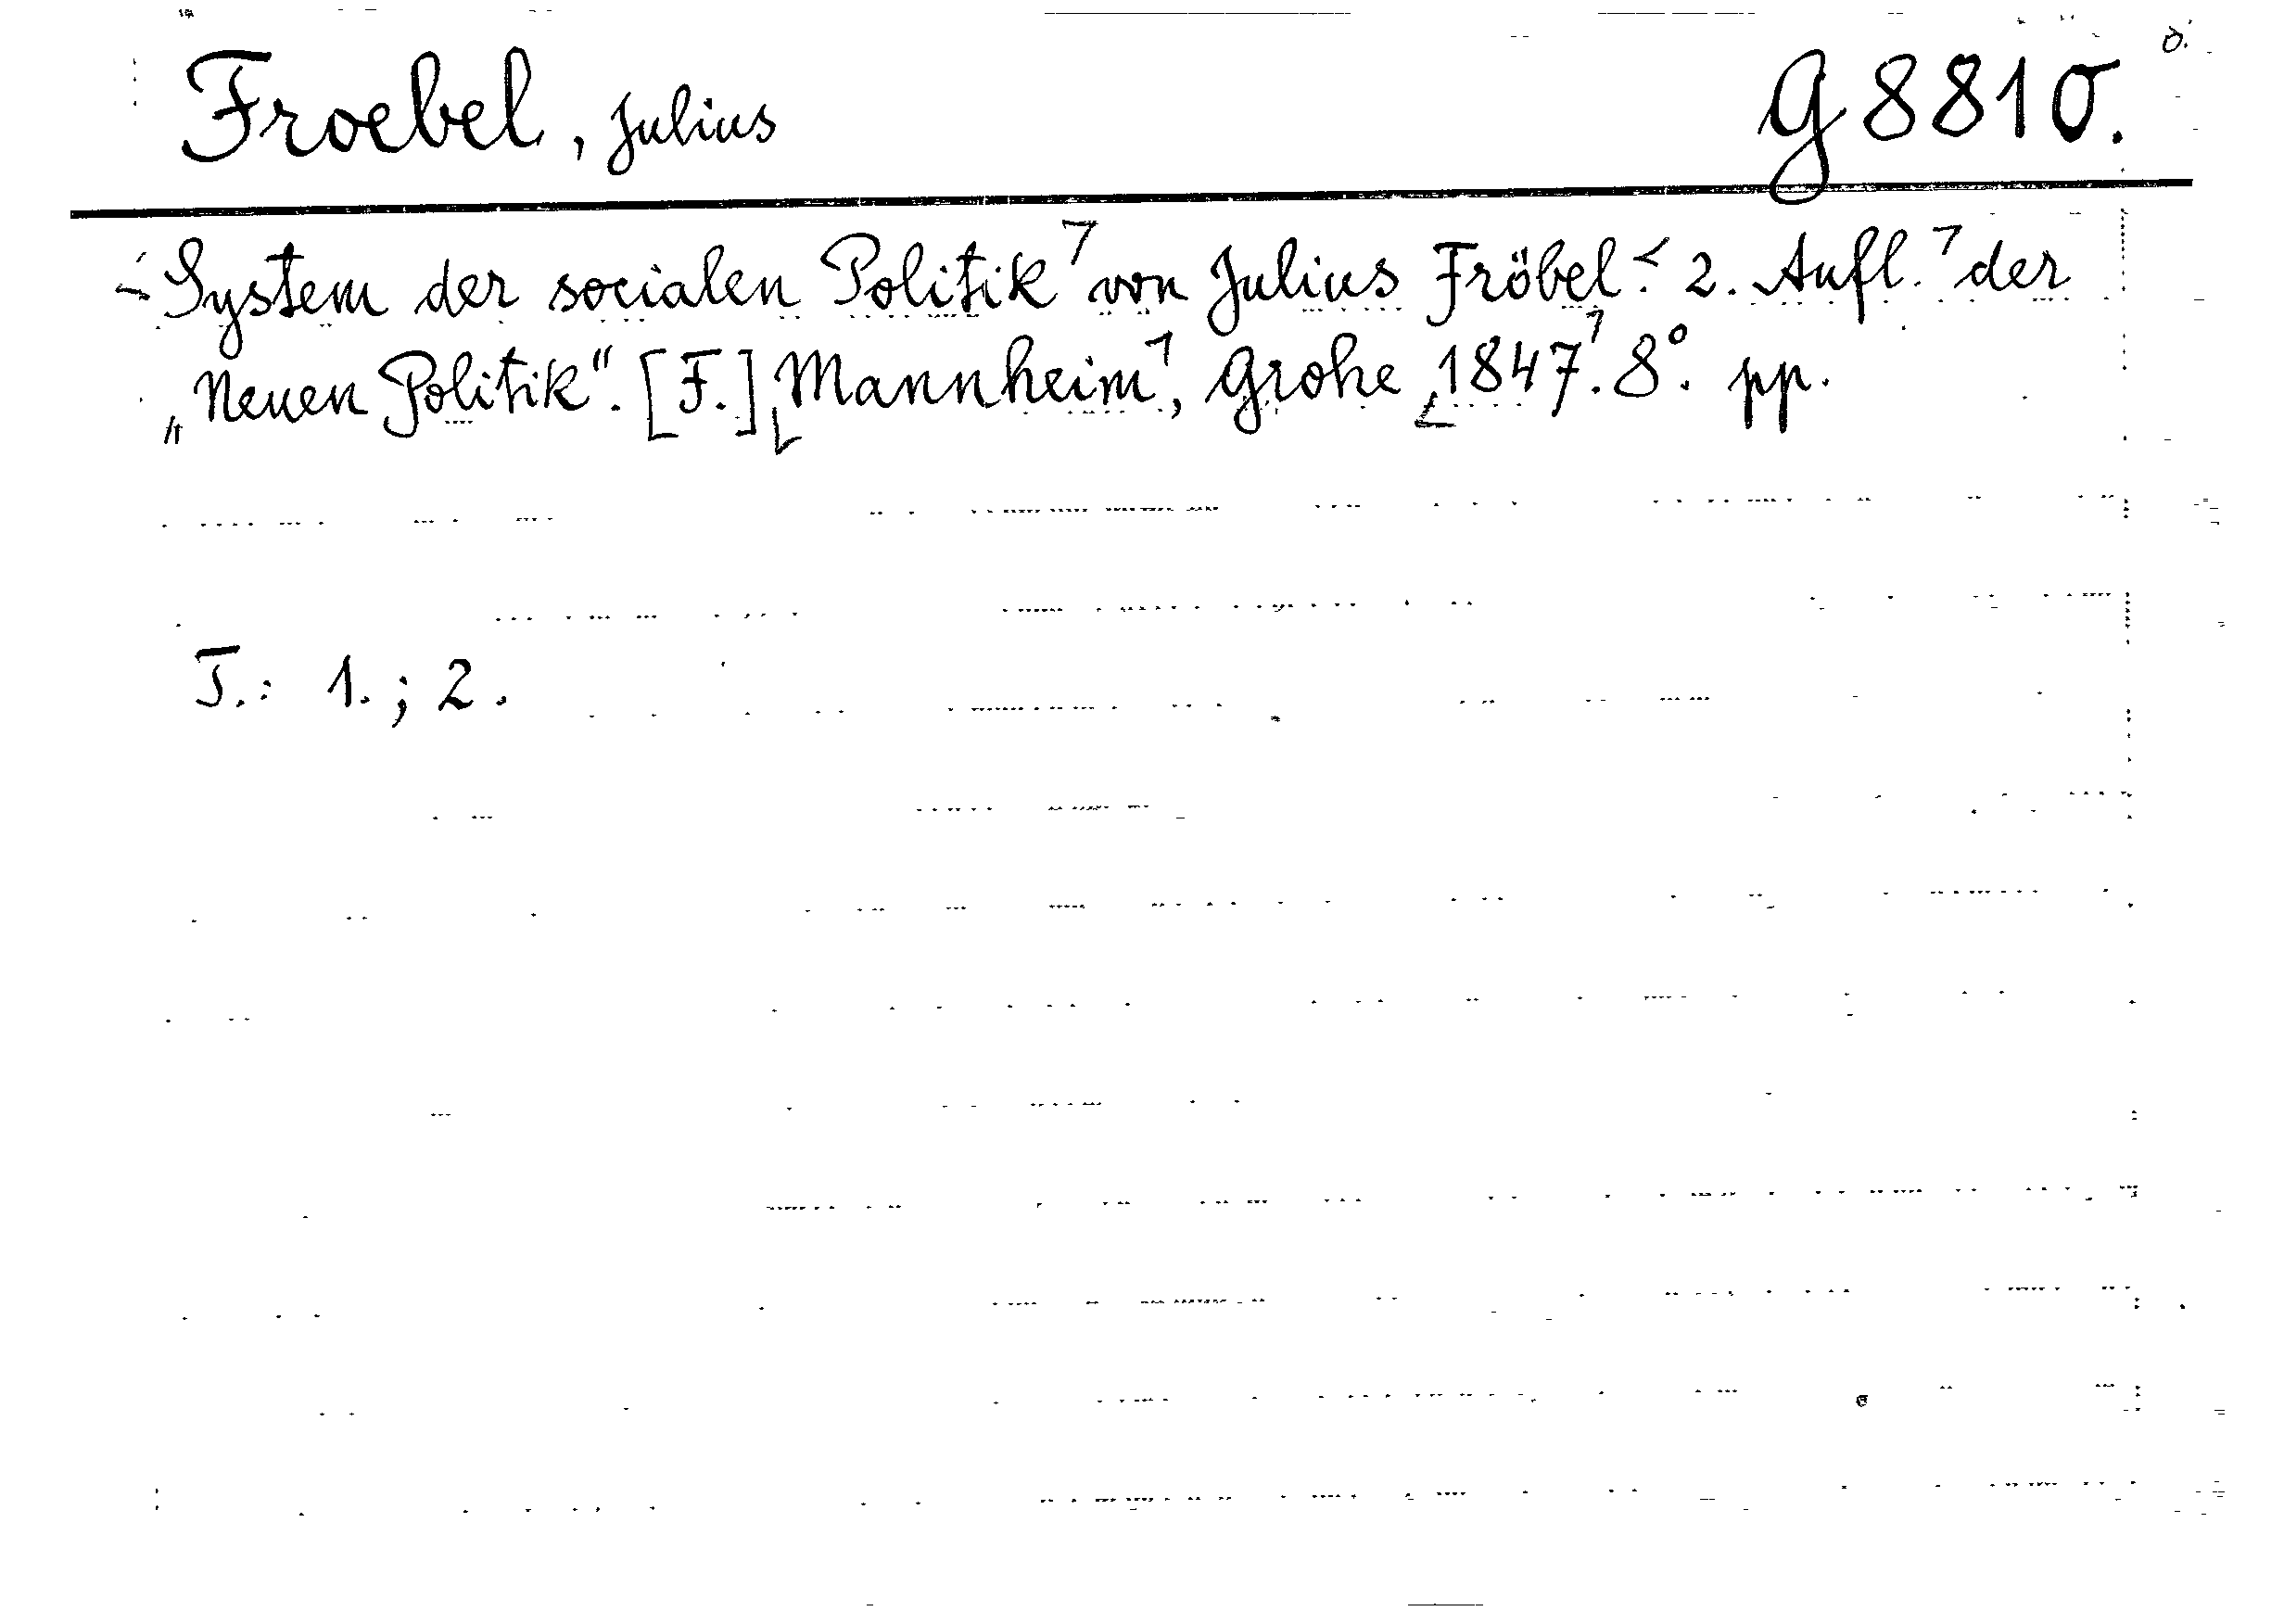 Froebel, Julius G 8810.
System der socialen Politik von Julius Fröbel. 2. Aufl. der
„Neuen Politik". [F.] Mannheim, Grohe 1847. 8°. pp.
T.: 1.; 2.